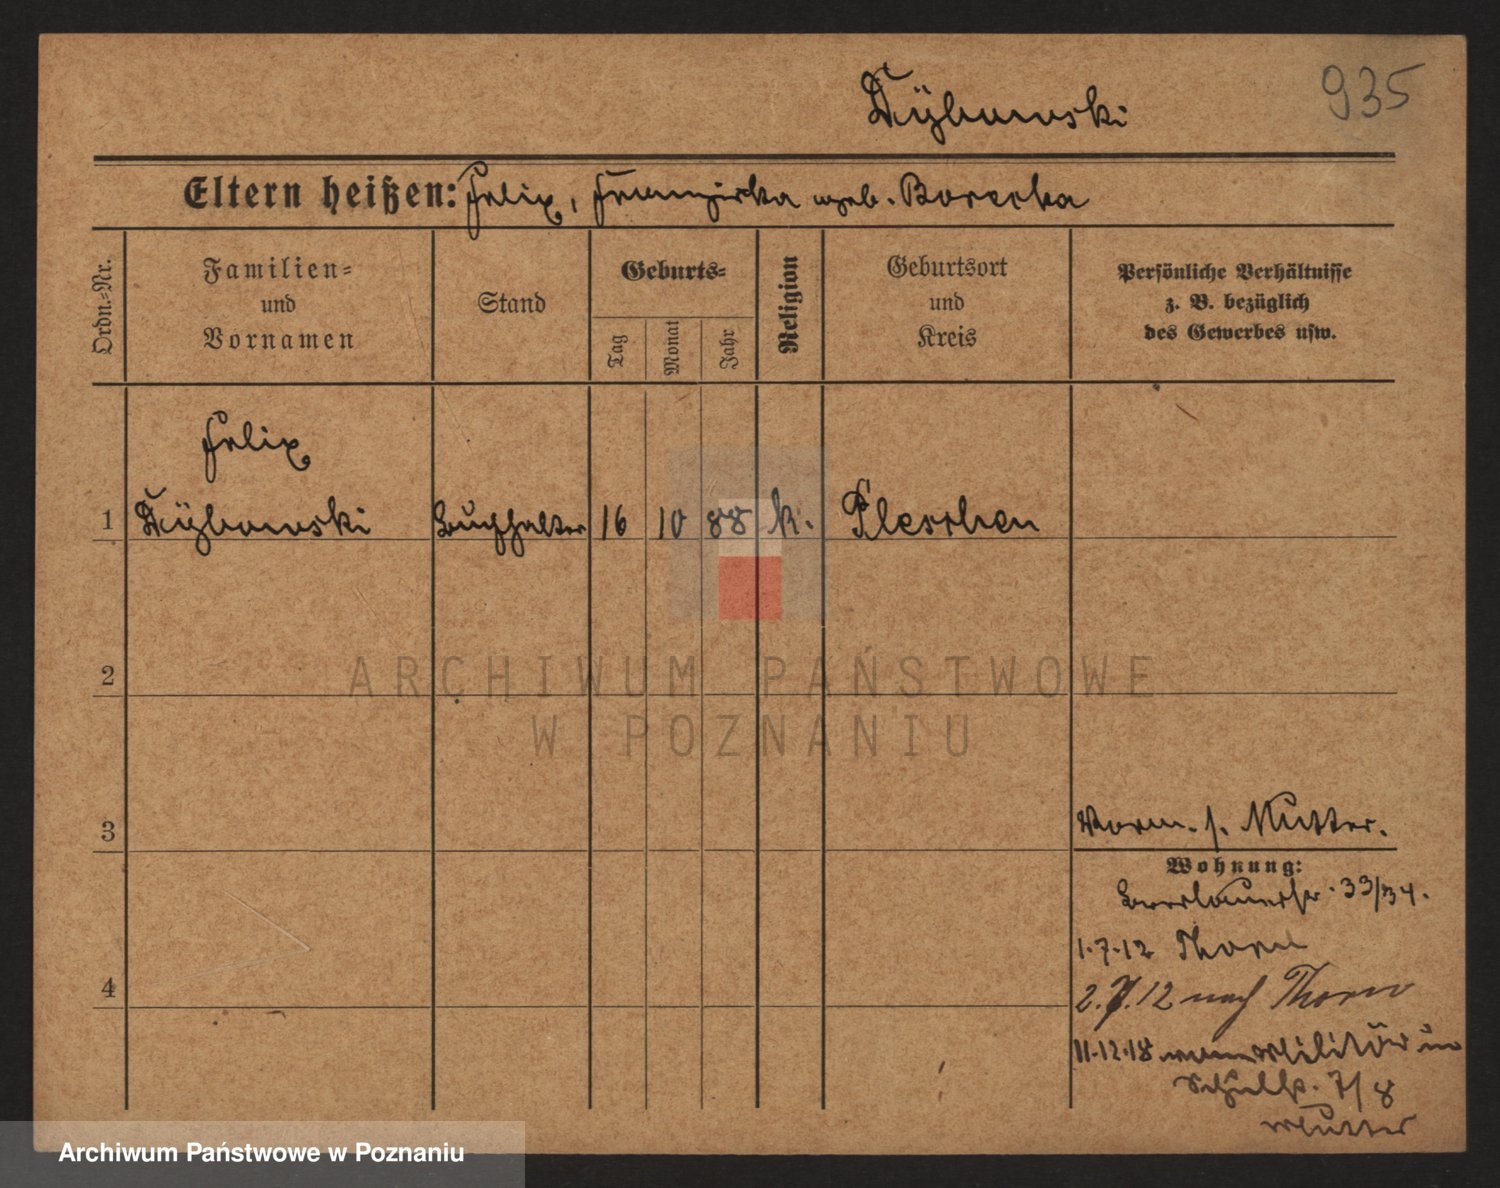 Dÿbowski
935
Eltern heißen: Felix, Franziska geb. Borecka
Ordn.=Nr.
Familien=
und
Vornamen
Stand
Geburts=
Tag
Monat
Jahr
Religion
Geburtsort
und
Kreis
Persönliche Verhältnisse
z. B. bezüglich
des Gewerbes usw.
Felix
1 Dÿbowski Buchhalter 16 10 88 k. Pleschen
2
ARCHIWUM PAŃSTWOWE
W POZNANIU
3
Vorm. s. Mutter.
Wohnung:
33/34.
1.7.12 Thorn
4
2.7.12 nach Thorn
11.12.18 vom Militär in
Schulstr. 7/8
Mutter
Archiwum Państwowe w Poznaniu